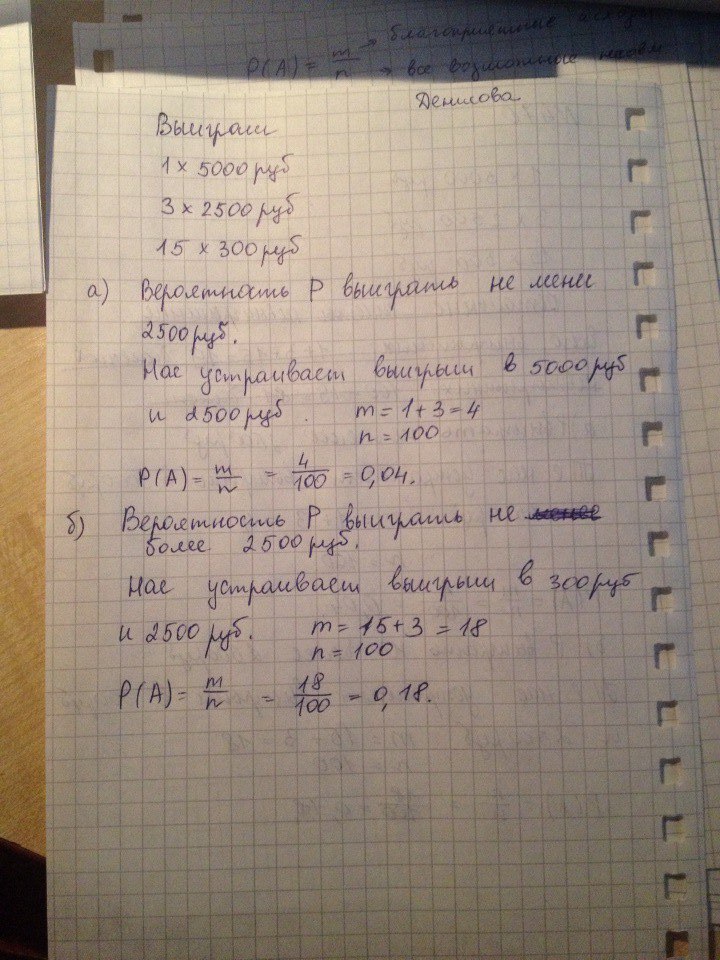 P(A) = m/n → благоприятные исход
→ все возможные
Денисова
Выиграш
1 × 5000 руб
3 × 2500 руб
15 × 300 руб
а) Вероятность P выиграть не менее
2500 руб.
Нас устраивает выигрыш в 5000 руб
и 2500 руб. m = 1 + 3 = 4
n = 100
P(A) = m/n = 4/100 = 0,04.
б) Вероятность P выиграть не менее
более 2500 руб.
Нас устраивает выигрыш в 300 руб
и 2500 руб. m = 15 + 3 = 18
n = 100
P(A) = m/n = 18/100 = 0,18.